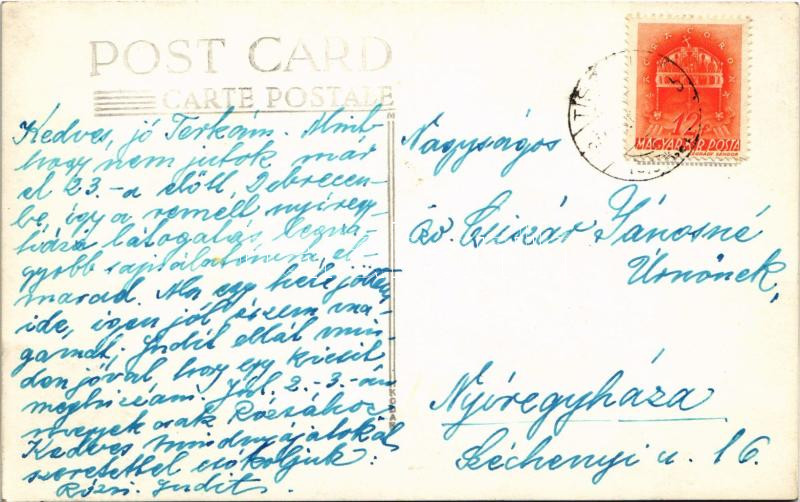 POST CARD
CARTE POSTALE
Kedves, jó Terkám. Mint-
hogy nem jutok már
el 23.-a előtt, Debrecen-
be, így a remélt nyíregy-
házi látogatás, legna-
gyobb sajnálatomra, el-
marad. Ma egy hete jöttem
ide, igen jól érzem ma-
gamat, Judit ellát min-
den jóval, hogy egy kicsit
meghízzam. Júl. 2.-3.-án
megyek csak Rózsához
Kedves mindnyájatokat
szeretettel csókoljuk:
Rózsi. Judit.
KODAK
SACRA CORONA
12f
MAGYAR POSTA
Nagyságos
özv. Csiszár Jánosné
Úrnőnek,
Nyíregyháza
Széchenyi u. 16.